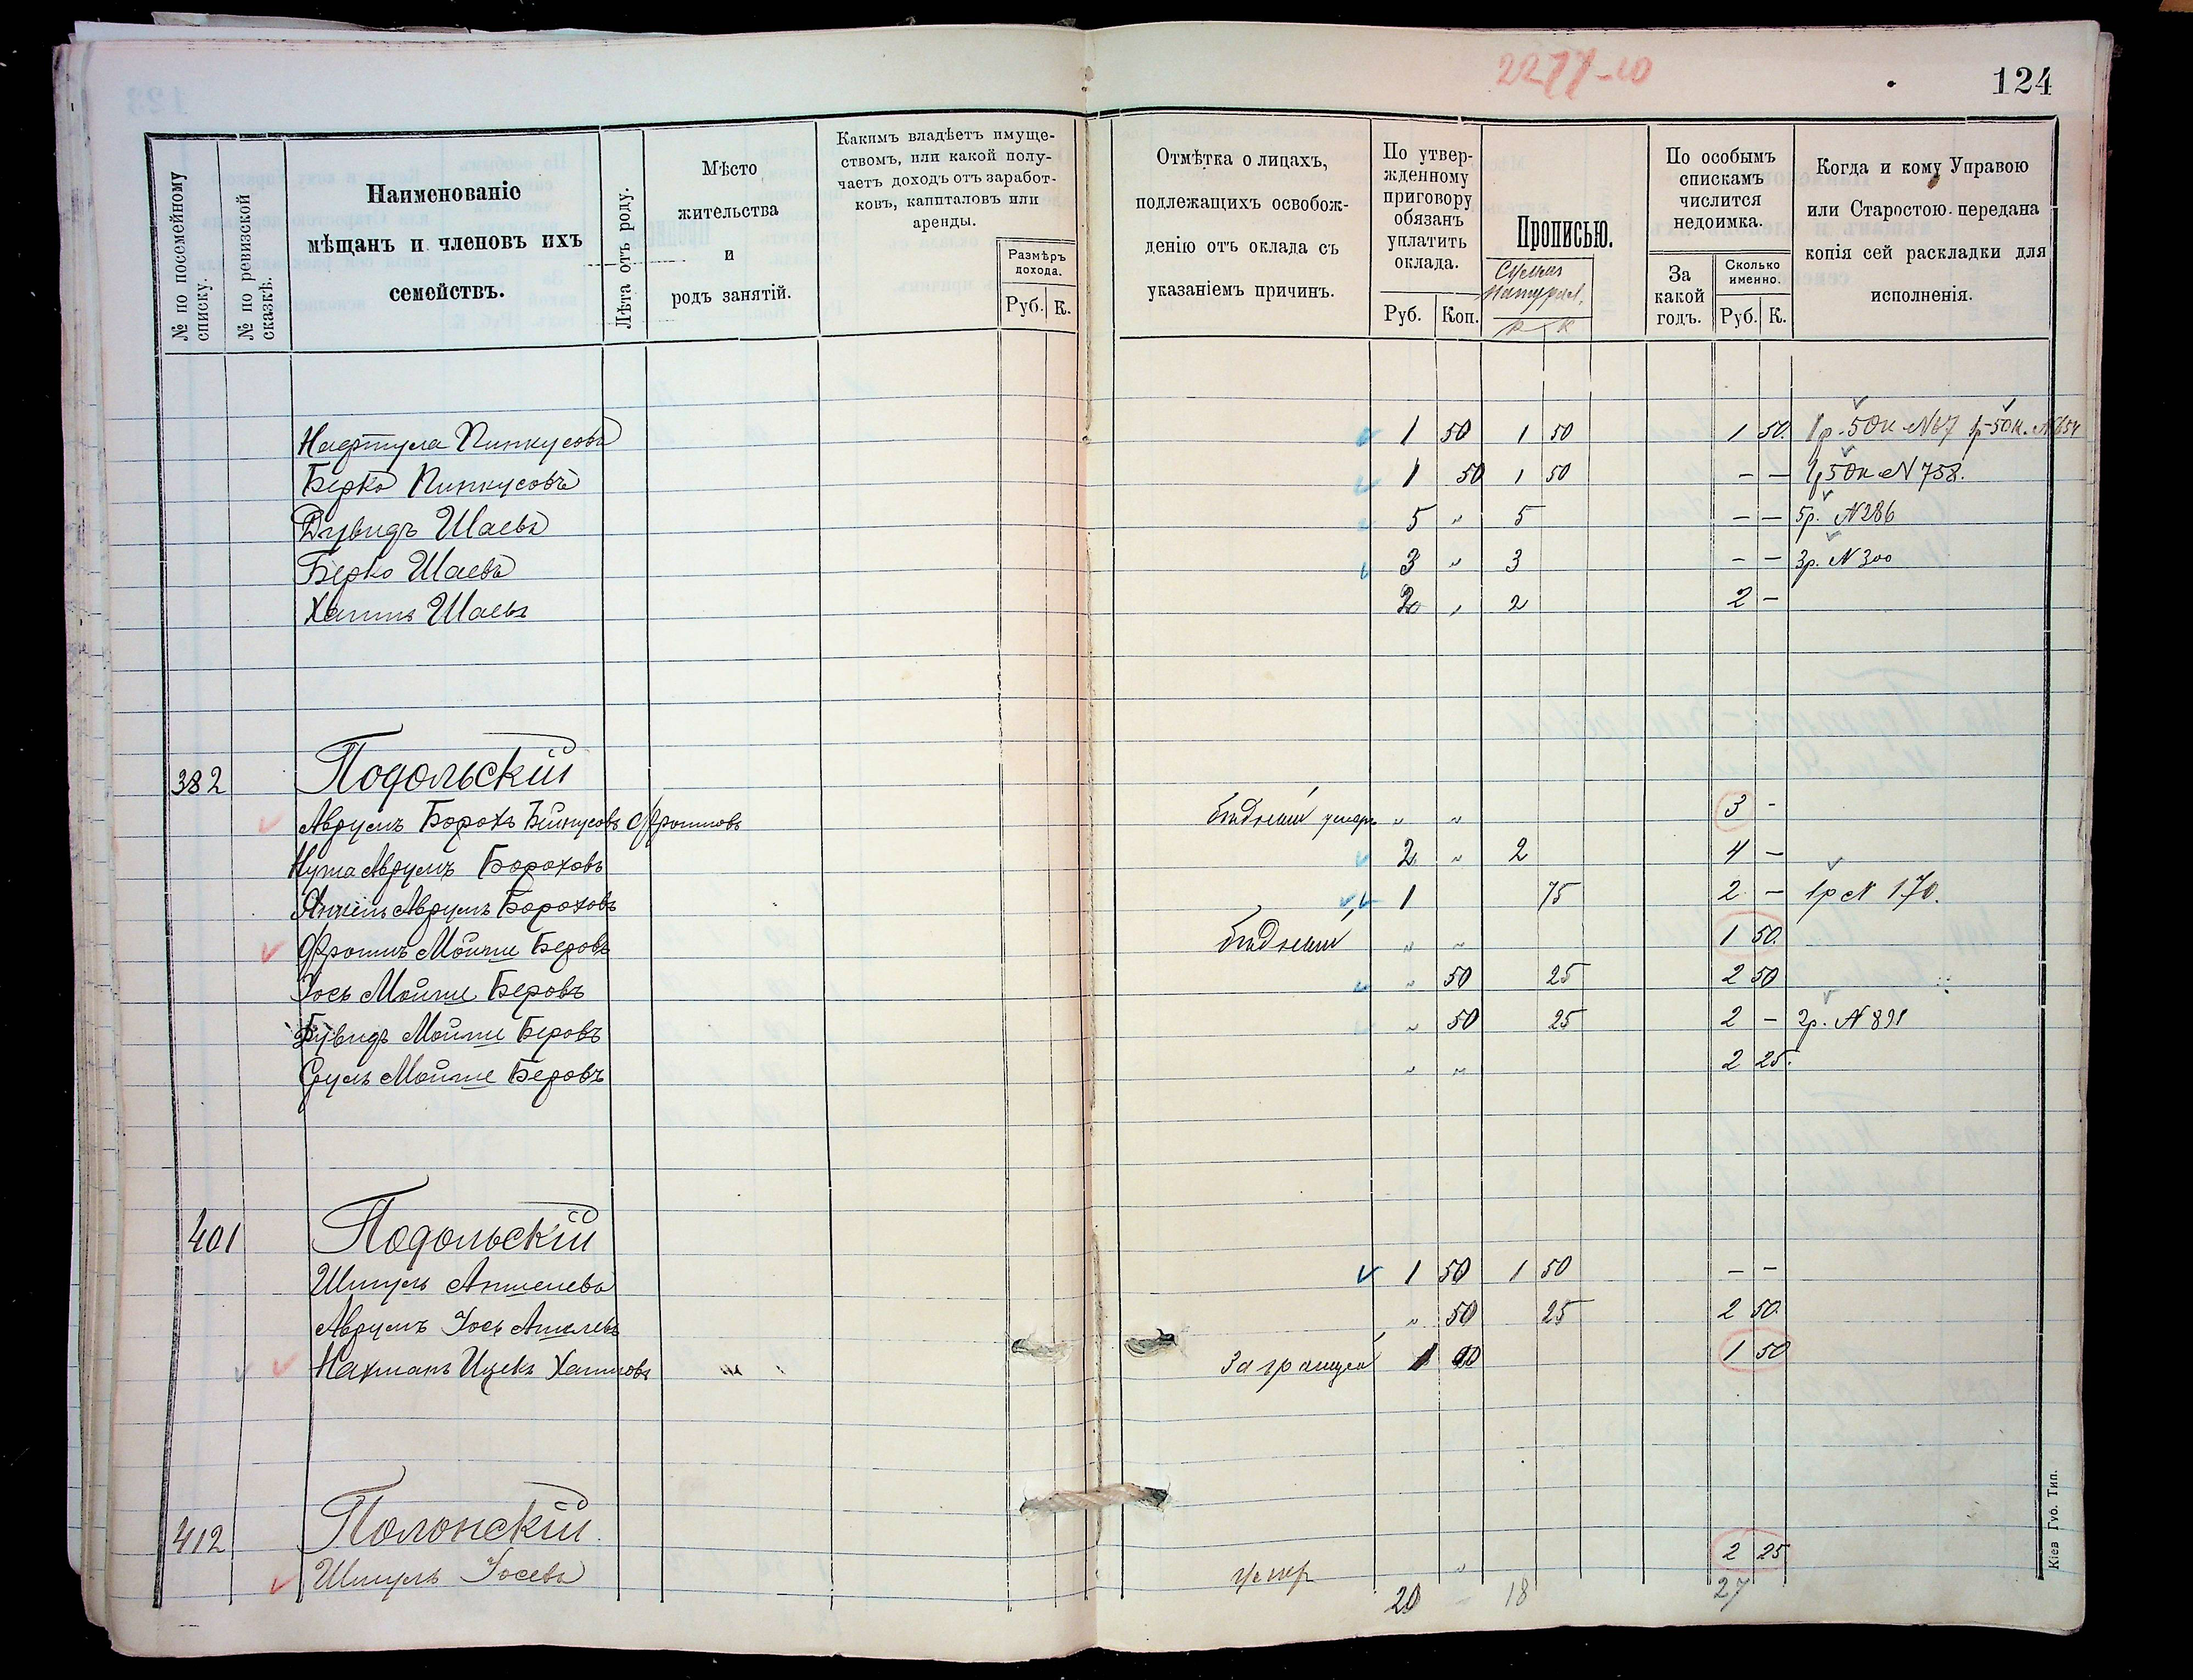 2277-20
124
№ по посемейному списку.
№ по ревизской сказкѣ.
Наименованіе мѣщанъ и членовъ ихъ семействъ.
Лѣта отъ роду.
Мѣсто жительства и родъ занятій.
Какимъ владѣетъ имуще-
ствомъ, или какой полу-
чаетъ доходъ отъ заработ-
ковъ, капиталовъ или
аренды.
Размѣръ дохода.
Руб. К.
Отмѣтка о лицахъ,
подлежащихъ освобож-
денію отъ оклада съ
указаніемъ причинъ.
По утвер-
жденному
приговору
обязанъ
уплатить
оклада.
Руб. Коп.
Прописью.
По особымъ
спискамъ
числится
недоимка.
За какой годъ.
Сколько именно.
Руб. К.
Когда и кому Управою
или Старостою передана
копія сей раскладки для
исполненія.
Нафтула Пинкусовъ 1 50 1 50 1 50. 1р 50к №67 1р-50к. №654
Берко Пинкусовъ 1 50 1 50 - - 1р 50к №758.
Дувидъ Шаевъ 5 " 5 - - 5р. №286
Берко Шаевъ 3 " 3 - - 3р. №300
Хаимъ Шаевъ 2 " 2 2 -
382 Подольскій
Аврумъ Борохъ Фроимовъ бѣдный умеръ " " 3 -
Нута Аврумъ Бороховъ 2 " 2 4 -
Янкель Аврумъ Бороховъ 1 75 2 - 1р № 170.
Фроимъ Мойше Беровъ бѣдный " " 1 50.
Іось Мойше Беровъ " 50 25 2 50
Дувидъ Мойше Беровъ " 50 25 2 - 2р. №891
Сруль Мойше Беровъ " " 2 25.
401 Подольскій
Шмуль Аншелевъ 1 50 1 50 - -
Аврумъ Іось Аншелевъ " 50 25 2 50
Нахманъ Ицекъ Хаимовъ За границей 1 50
412 Полонскій
Шмуль Іосевъ умер " 2 25
20 - 18 27
Кіев Губ. Тип.